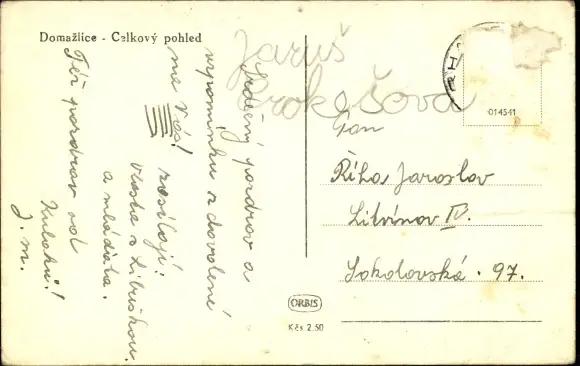 Domažlice - Celkový pohled
Jaruš
Prokešová
Srdečný pozdrav a
vzpomínku z dovolené
na Vás!
zasílají:
Vlasta s Libuškou
a mláďata.
Též pozdrav od
J. M.
Pan
Říha Jaroslav
Litvínov IV.
Sokolovská 97.
014541
ORBIS
Kčs 2.50